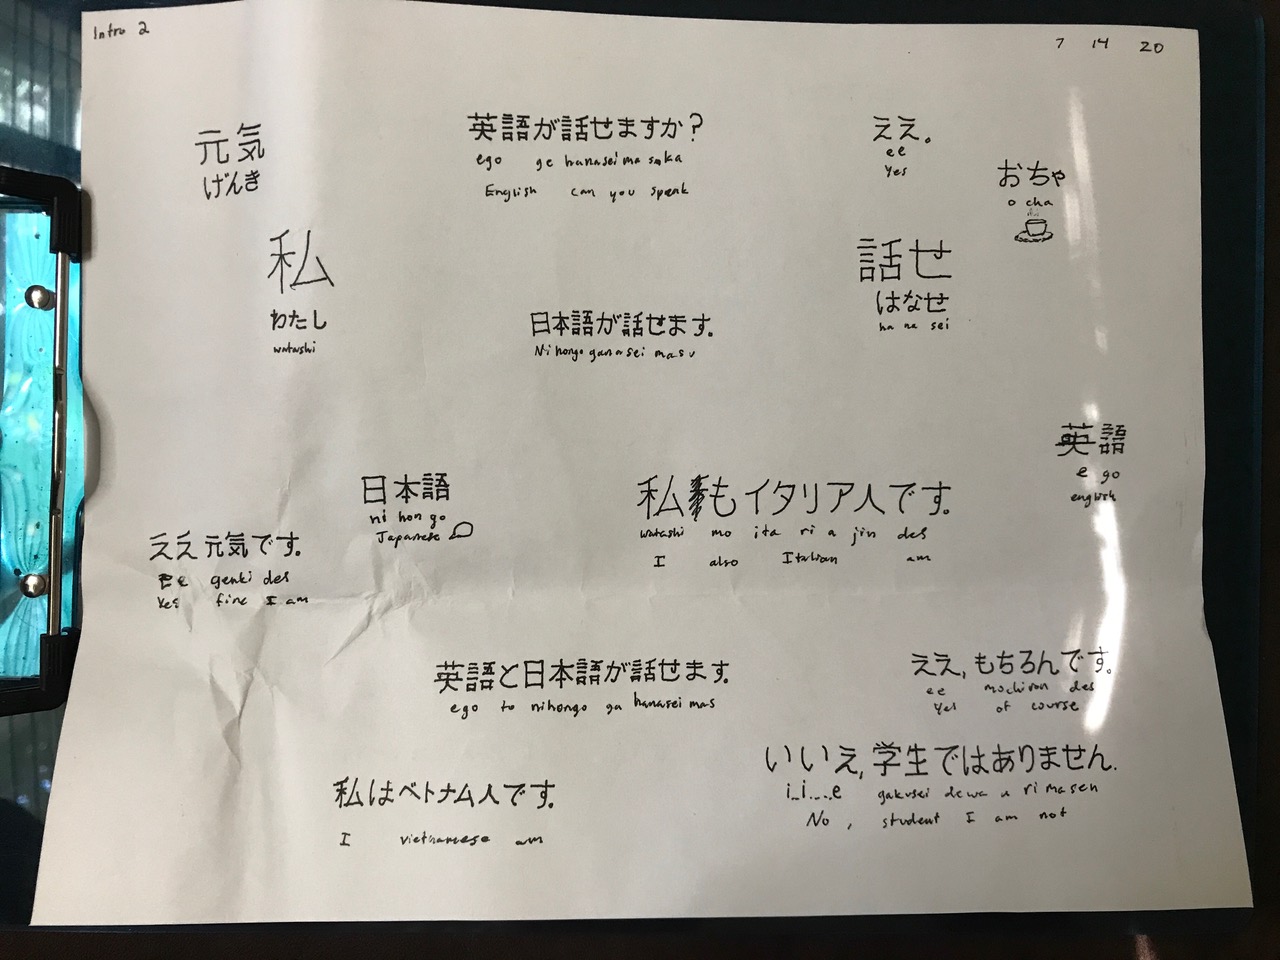 Intro 2
7 14 20
元気
げんき
英語が話せますか?
ego ge hanasei ma suka
English can you speak
ええ。
ee
yes
おちゃ
o cha
私
わたし
watashi
日本語が話せます。
Nihongo ganasei masu
話せ
はなせ
ha na sei
英語
e go
english
日本語
ni hon go
Japanese
私もイタリア人です。
watashi mo ita ri a jin des
I also Italian am
ええ元気です。
Ee genki des
Yes fine I am
英語と日本語が話せます。
ego to nihongo ga hanasei mas
ええ,もちろんです。
ee mochiron des
Yes of course
いいえ,学生ではありません.
i_i_._e gakusei dewa a ri masen
No, student I am not
私はベトナム人です。
I vietnamese am